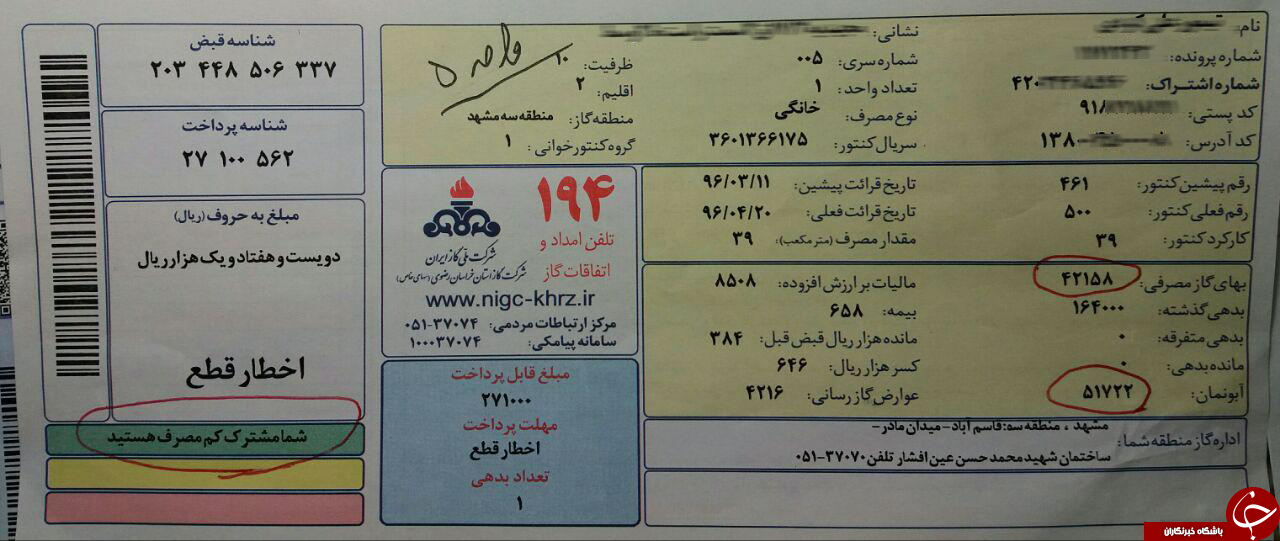 نام:
نشانی:
شماره پرونده:
شماره سری: ۰۰۵
ظرفیت: ۱۰
شماره اشتراک: ۴۲۰
تعداد واحد: ۱
اقلیم: ۲
کد پستی: ۹۱۸
نوع مصرف: خانگی
منطقه گاز: منطقه سه مشهد
کد آدرس: ۱۳۸
سریال کنتور: ۳۶۰۱۳۶۶۱۷۵
گروه کنتورخوانی: ۱
رقم پیشین کنتور: ۴۶۱
تاریخ قرائت پیشین: ۹۶/۰۳/۱۱
رقم فعلی کنتور: ۵۰۰
تاریخ قرائت فعلی: ۹۶/۰۴/۲۰
کارکرد کنتور: ۳۹
مقدار مصرف (متر مکعب): ۳۹
بهای گاز مصرفی: ۴۲۱۵۸
مالیات بر ارزش افزوده: ۸۵۰۸
بدهی گذشته: ۱۶۴۰۰۰
بیمه: ۶۵۸
بدهی متفرقه: ۰
مانده هزار ریال قبض قبل: ۳۸۴
مانده بدهی: ۰
کسر هزار ریال: ۶۴۶
آبونمان: ۵۱۷۲۲
عوارض گاز رسانی: ۴۲۱۶
اداره گاز منطقه شما:
مشهد ، منطقه سه: قاسم آباد - میدان مادر -
ساختمان شهید محمد حسن عین افشار تلفن ۳۷۰۷۰-۰۵۱
۱۹۴
تلفن امداد و
اتفاقات گاز
شرکت ملی گاز ایران
شرکت گاز استان خراسان رضوی (سهامی خاص)
www.nigc-khrz.ir
مرکز ارتباطات مردمی: ۳۷۰۷۴-۰۵۱
سامانه پیامکی: ۱۰۰۰۳۷۰۷۴
مبلغ قابل پرداخت
۲۷۱۰۰۰
مهلت پرداخت
اخطار قطع
تعداد بدهی
۱
شناسه قبض
۲۰۳ ۴۴۸ ۵۰۶ ۳۳۷
شناسه پرداخت
۲۷ ۱۰۰ ۵۶۲
مبلغ به حروف (ریال)
دویست و هفتاد و یک هزار ریال
اخطار قطع
شما مشترک کم مصرف هستید
باشگاه خبرنگاران